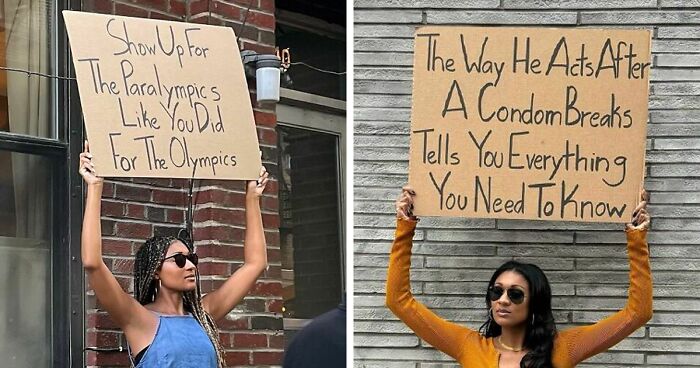 Show Up For
The Paralympics
Like You Did
For The Olympics
The Way He Acts After
A Condom Breaks
Tells You Everything
You Need To Know